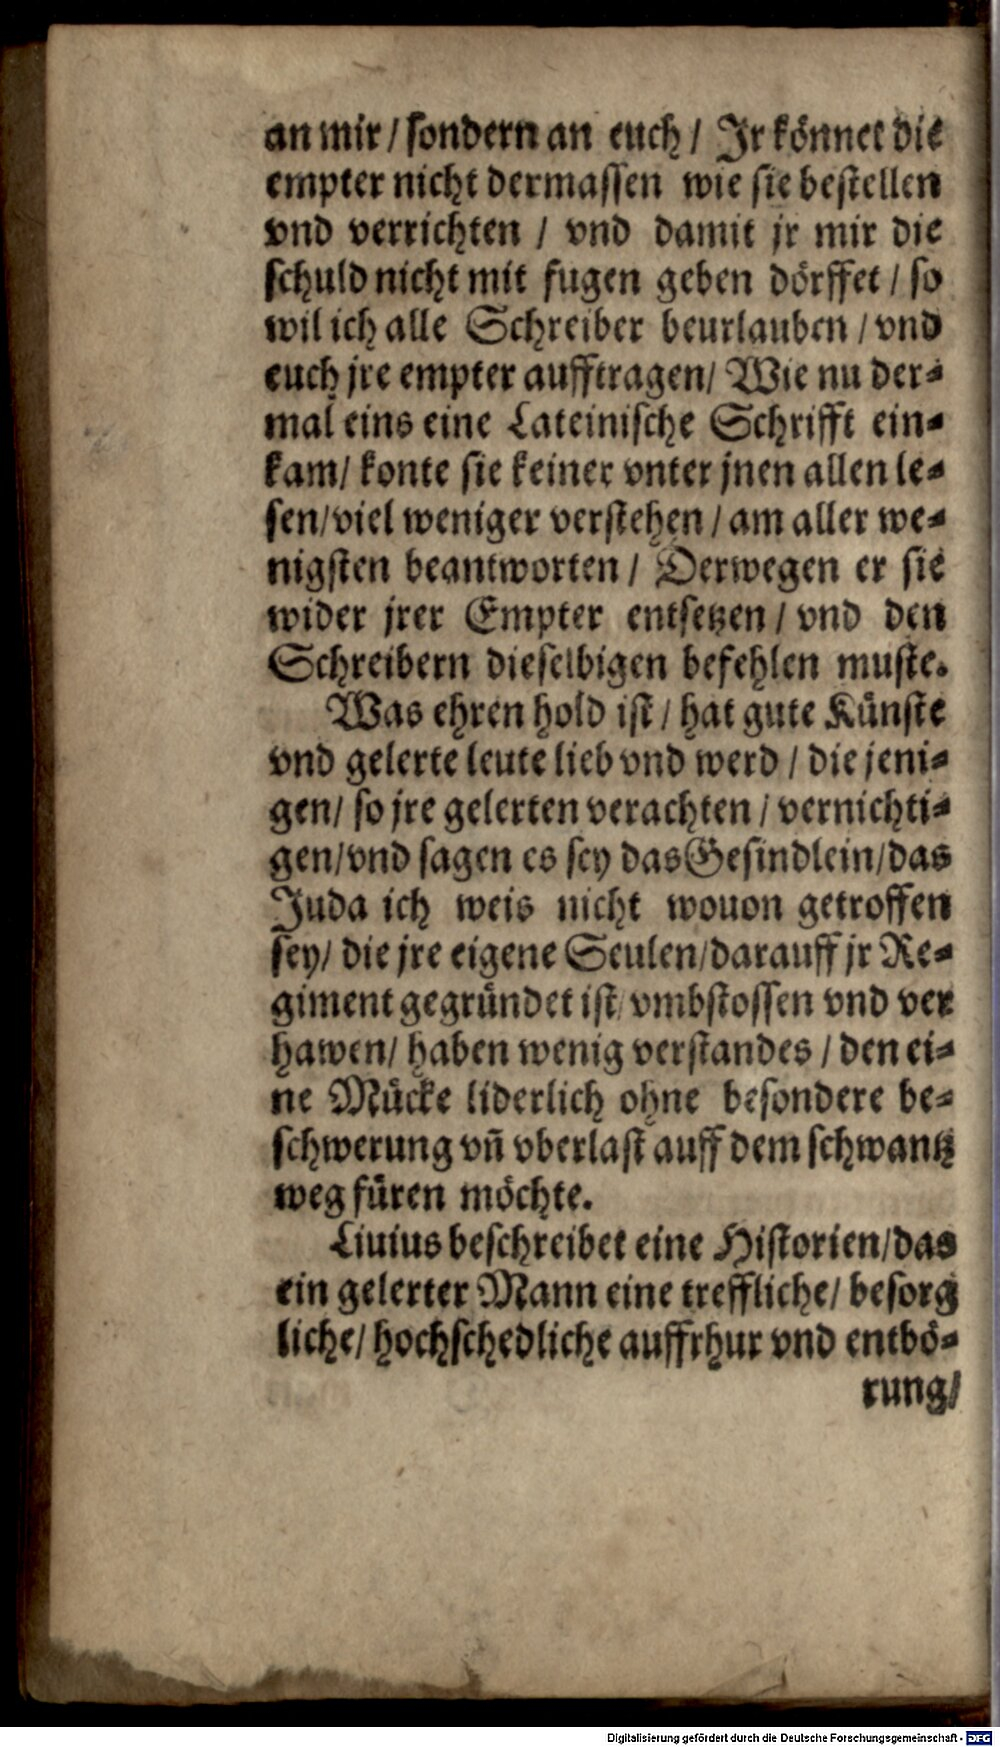 an mir / sondern an euch / Jr könnet die
empter nicht dermassen wie sie bestellen
vnd verrichten / vnd damit jr mir die
schuld nicht mit fugen geben dörffet / so
wil ich alle Schreiber beurlauben / vnd
euch jre empter aufftragen / Wie nu der-
mal eins eine Lateinische Schrifft ein-
kam / konte sie keiner vnter jnen allen le-
sen / viel weniger verstehen / am aller we-
nigsten beantworten / Derwegen er sie
wider jrer Empter entsetzen / vnd den
Schreibern dieselbigen befehlen muste.
Was ehren hold ist / hat gute Künste
vnd gelerte leute lieb vnd werd / die jeni-
gen / so jre gelerten verachten / vernichti-
gen / vnd sagen es sey das Gesindlein / das
Juda ich weis nicht wouon getroffen
sey / die jre eigene Seulen / darauff jr Re-
giment gegründet ist / vmbstossen vnd ver
hawen / haben wenig verstandes / den ei-
ne Mücke liderlich ohne besondere be-
schwerung vñ vberlast auff dem schwantz
weg füren möchte.
Liuius beschreibet eine Historien / das
ein gelerter Mann eine treffliche / besorg
liche / hochschedliche auffrhur vnd entbö-
rung /
Digitalisierung gefördert durch die Deutsche Forschungsgemeinschaft - DFG